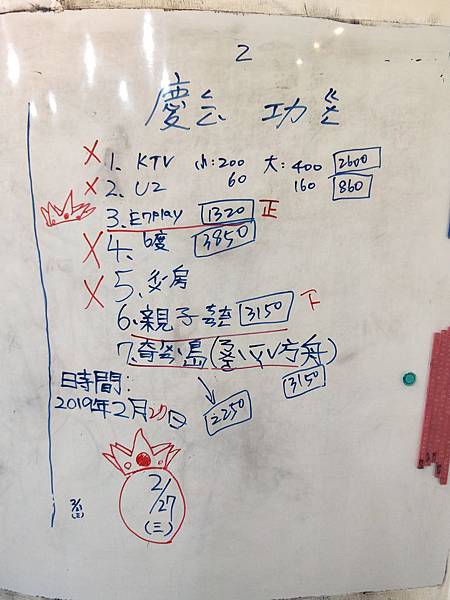 2
慶ㄙ 功ㄠ
x 1、KTV 小:200 大:400 2600
x 2、U2 60 160 860
3、Enplay 1320 正
x 4、6度 3850
x 5、房
6、親子 3150 下
7、島(方舟)
3150
日時間:
2019年2月27日
2250
2/27
(三)